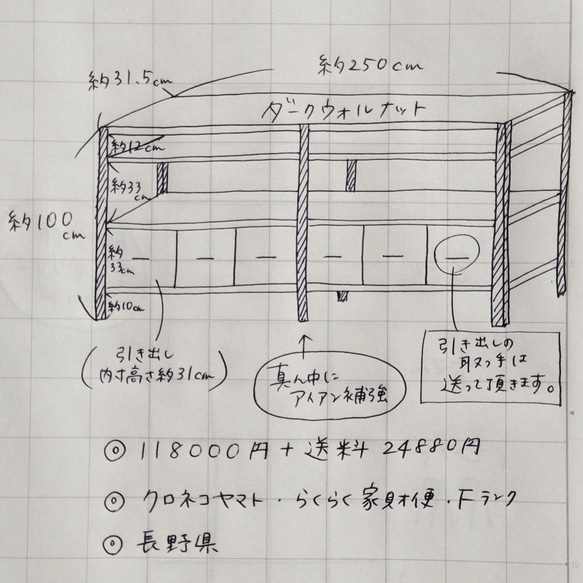 約250cm
約31.5cm
ダークウォルナット
約12cm
約33
cm
約100
cm
約
33cm
約10cm
引き出し
内寸高さ約31cm
真ん中に
アイアン補強
引き出しの
取っ手は
送って頂きます。
◎ 118000円+送料24880円
◎ クロネコヤマト・らくらく家財便・Fランク
◎ 長野県